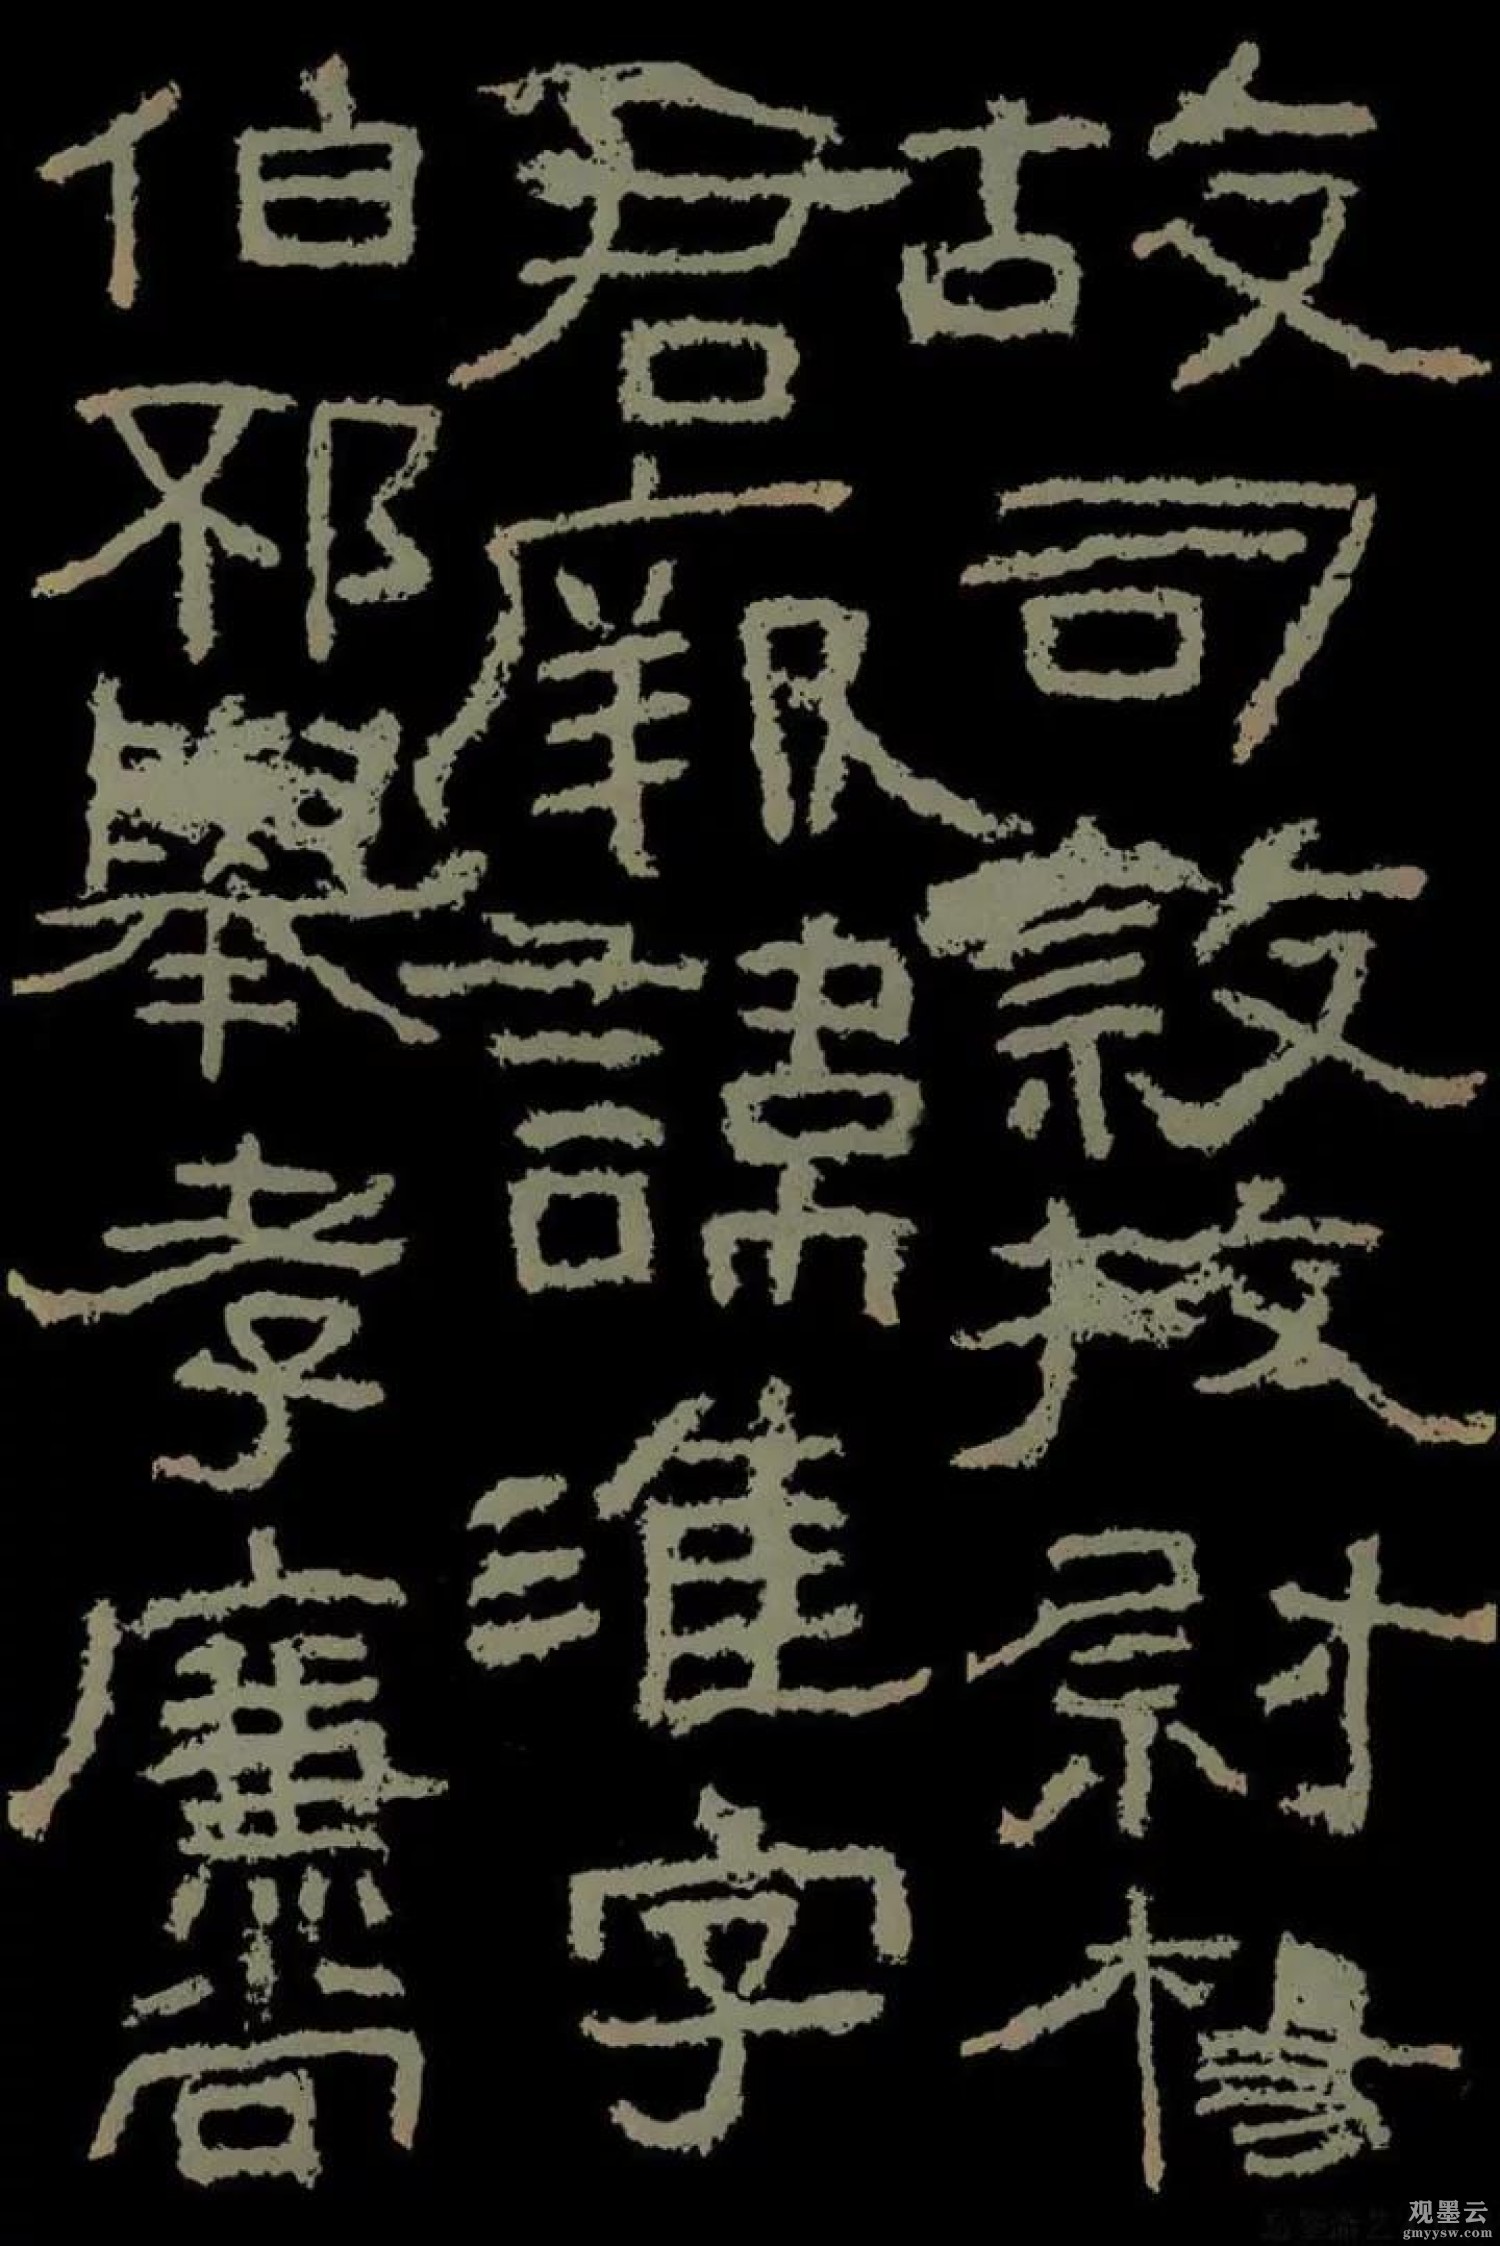 故司隸校尉楊
君厥諱淮字
伯邳舉孝廉尚
观墨云
gmyysw.com